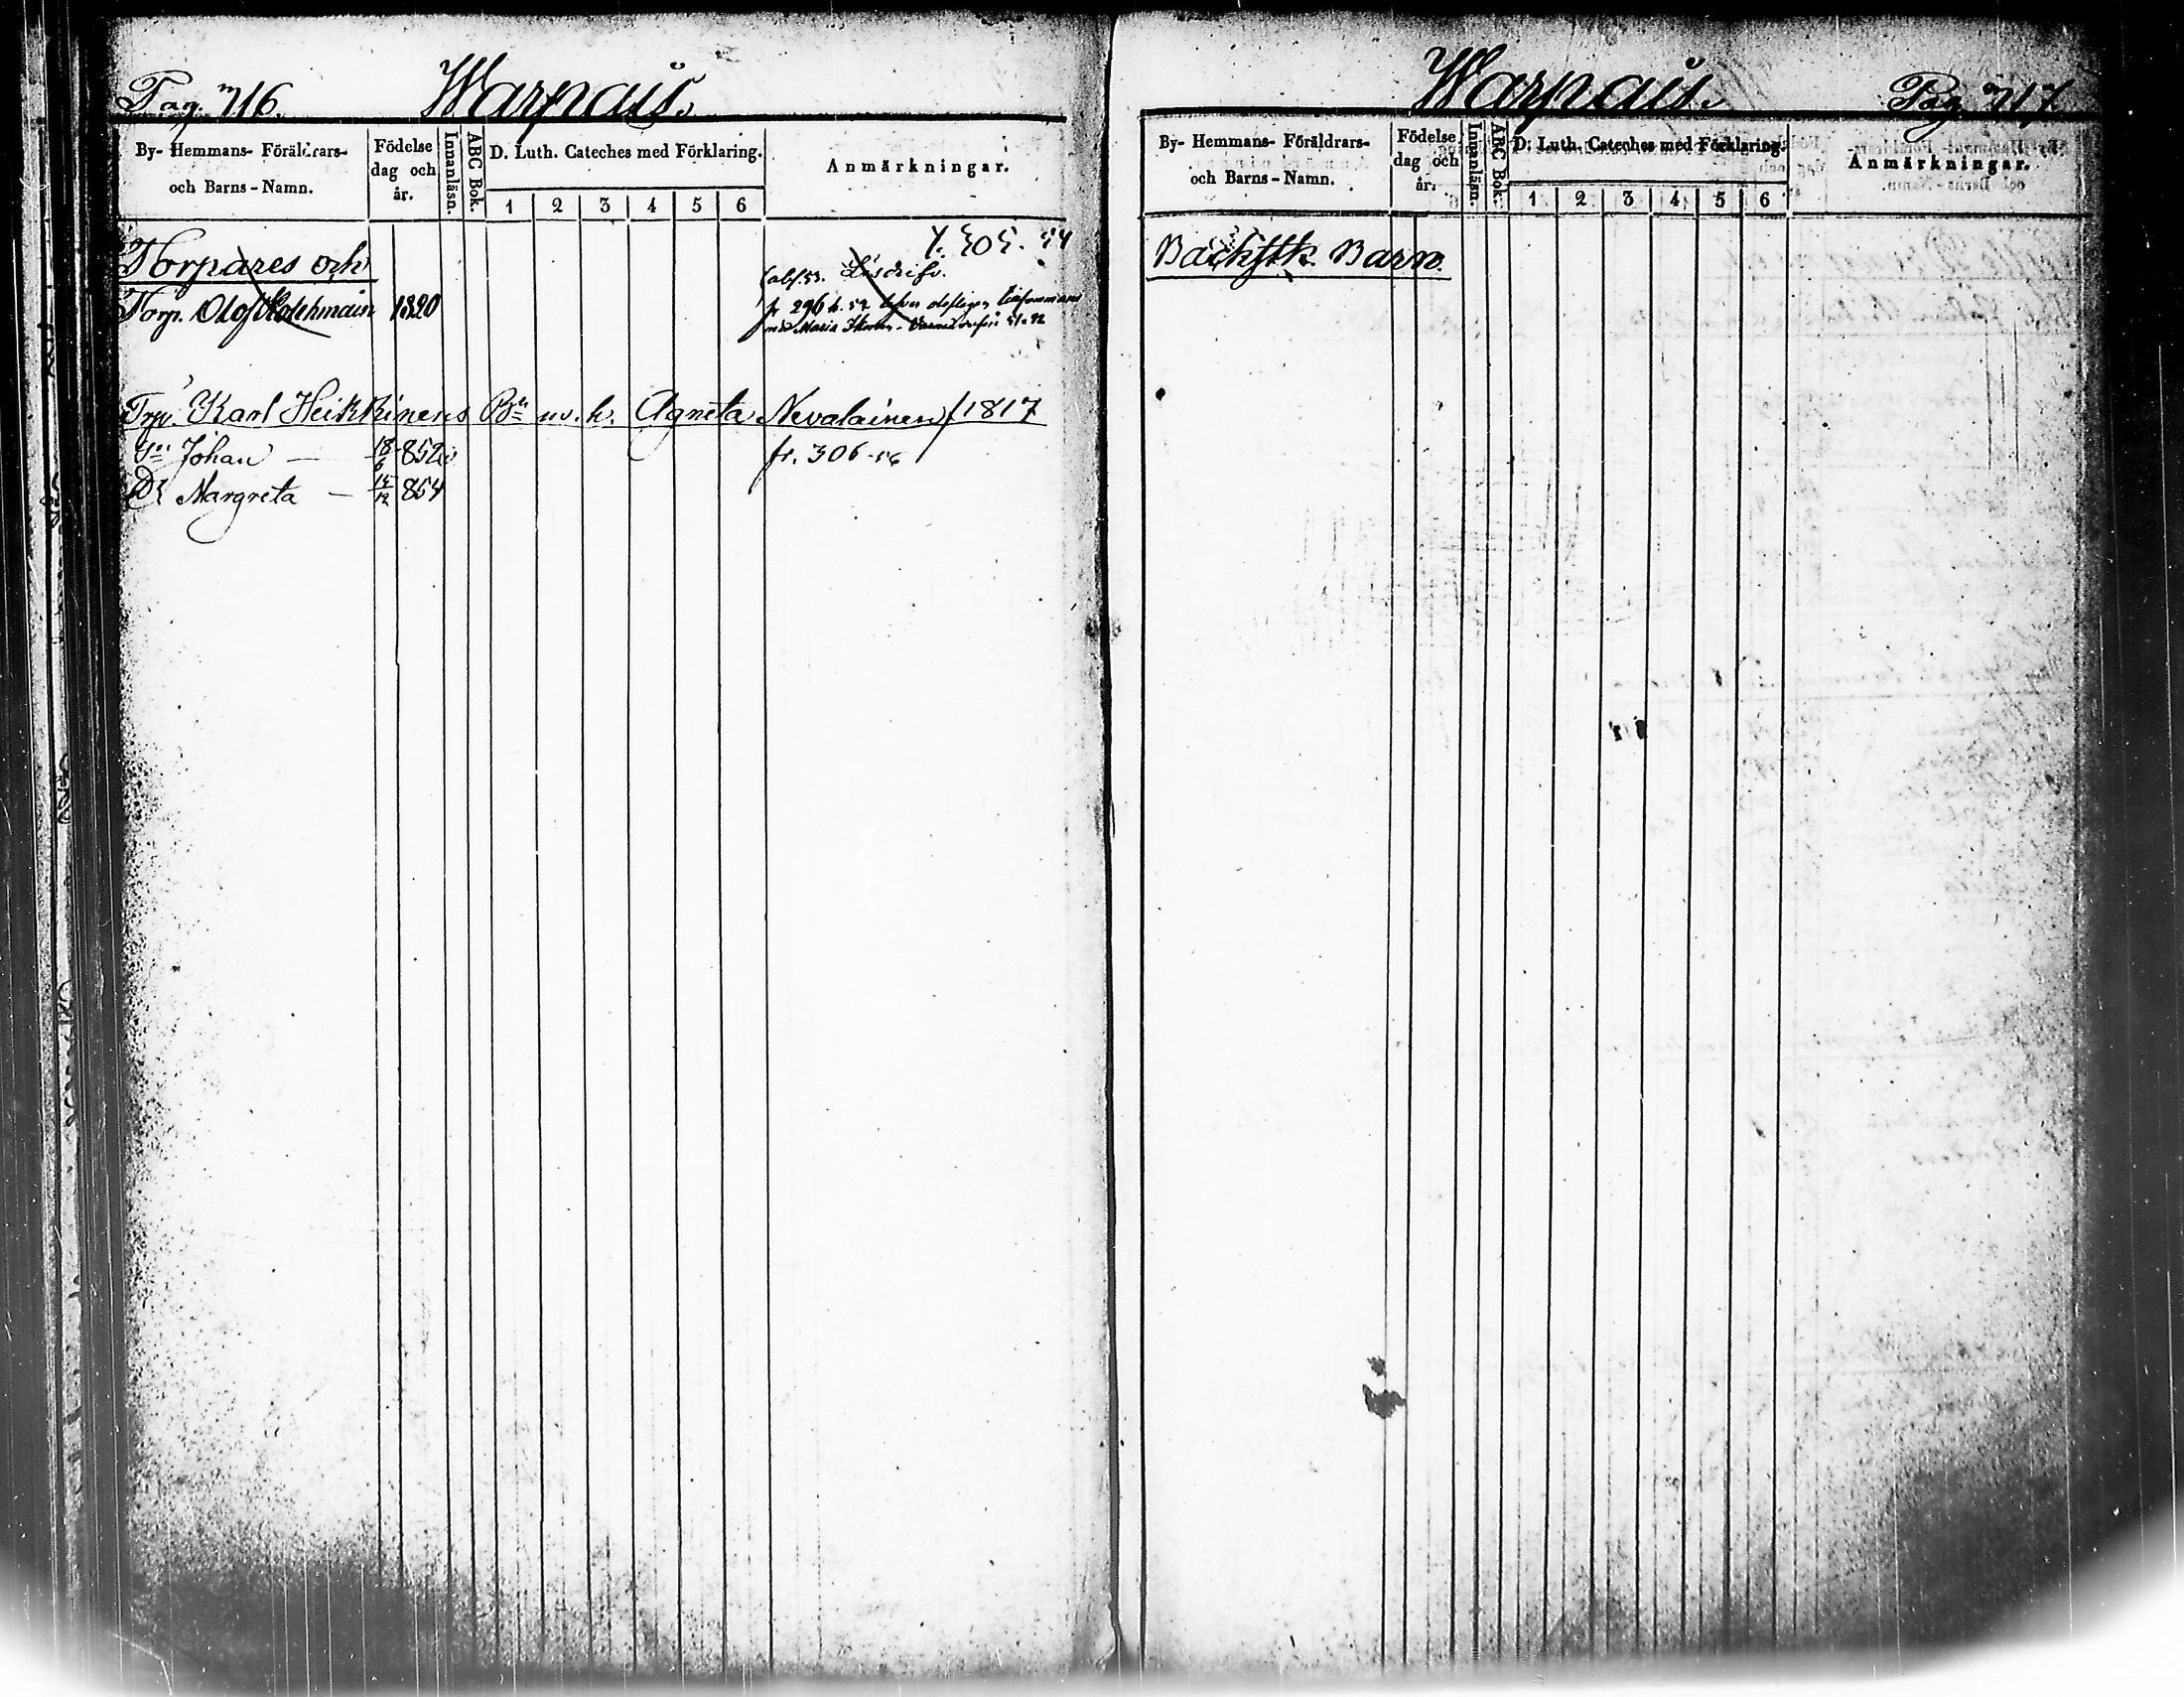 Pag. 716. Warpais.
By- Hemmans- Föräldrars-
och Barns-Namn.
Födelse
dag och
år.
Innanläsn.
ABC Bok.
D. Luth. Cateches med Förklaring.
1 2 3 4 5 6
Anmärkningar.
Torpares och
Y. 305. 54
Torp. Olof 1820
fr 296
med Maria
Trp. Karl Heikkinens Bn m. h. Agneta Nevalainen / 1817
Sn Johan — 18/6 852 fr. 306-56
Dr Margreta — 14/12 854
Warpais. Pag 717
By- Hemmans- Föräldrars-
och Barns-Namn.
Födelse
dag och
år.
Innanläsn.
ABC Bok.
D. Luth. Cateches med Förklaring.
1 2 3 4 5 6
Anmärkningar.
Backstk Barn.